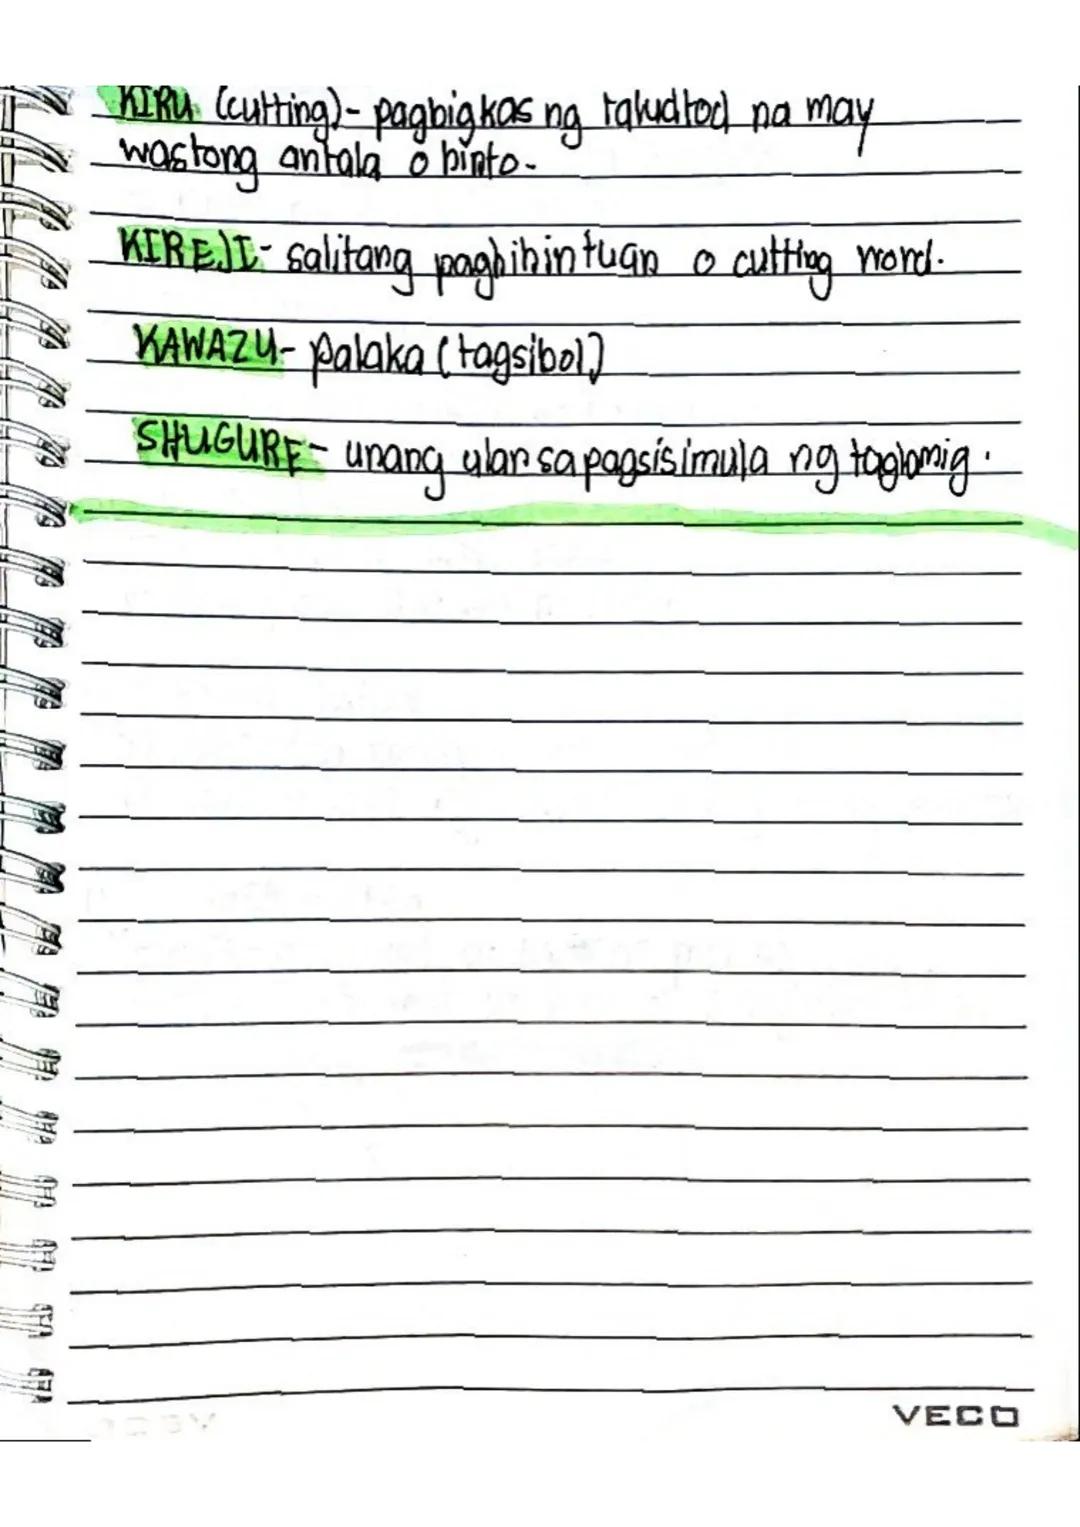 KIRU (cutting)- pagbigkas ng taludtod na may
wastong antala o hinto.
KIREJI- salitang paghihintuan o cutting word.
KAWAZU- palaka (tagsibol)
SHUGURE- unang ulan sa pagsisimula ng taglamig.
VECO